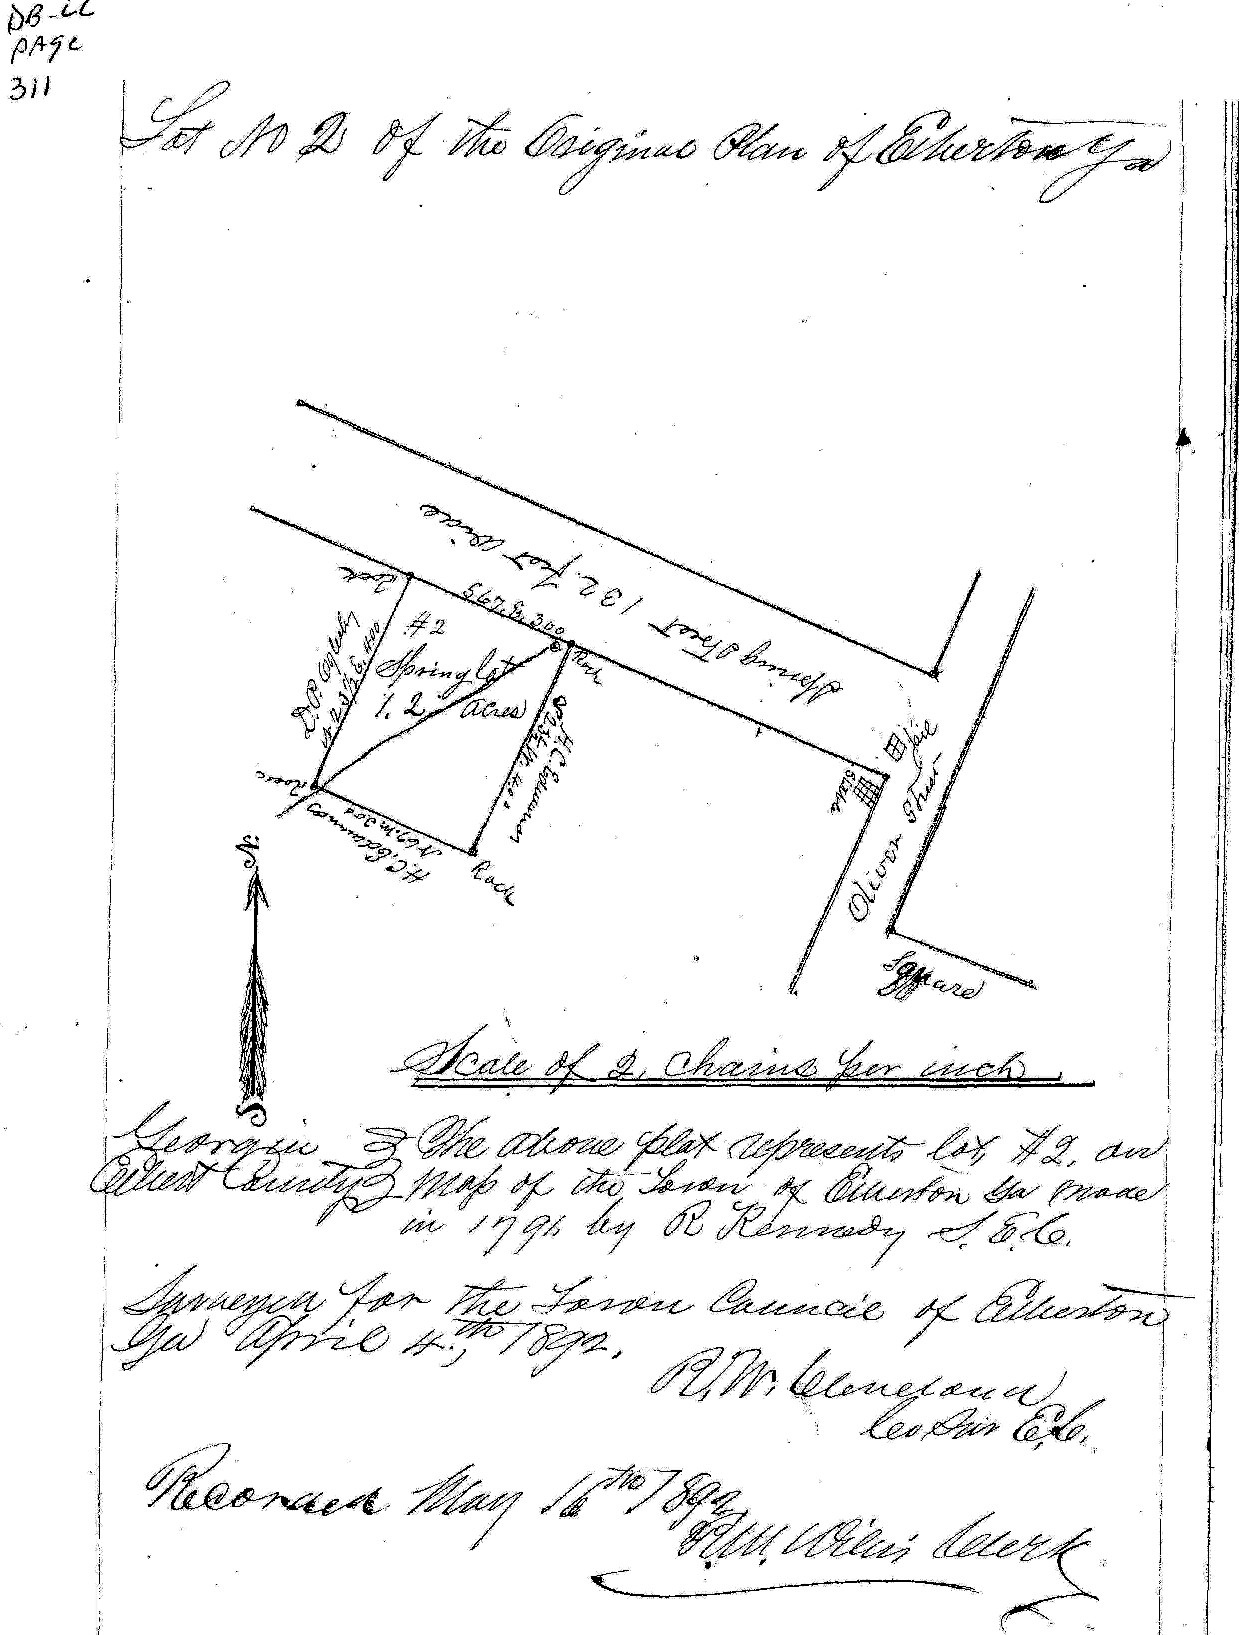 DB-LL
PAge
311
Lot No 2 of the Original Plan of Elberton Ga
Spring Street 132 feet Wide
Rock
S 67. E. 3.00
Rock
#2
Spring lot
1.2 Acres
D.P. Oglesby
N. 23 1/2 E. 4.00
H.C. Edmunds
S 23 1/2 W. 4.00
Rock
N 67. W. 3.00
H.C. Edmunds
Rock
Jail
Stable
Oliver Street
Square
N.
S
Scale of 2, chains per inch
Georgia } The above plat represents lot, #2, on
Elbert County } Map of the Town of Elberton Ga made
in 1791, by R Kennedy S. E. C.
Surveyed for the Town Council of Elberton
Ga April 4th, 1892.
R. W. Cleveland
Co Sur E. C.
Recorded May 16th 1892
Clerk